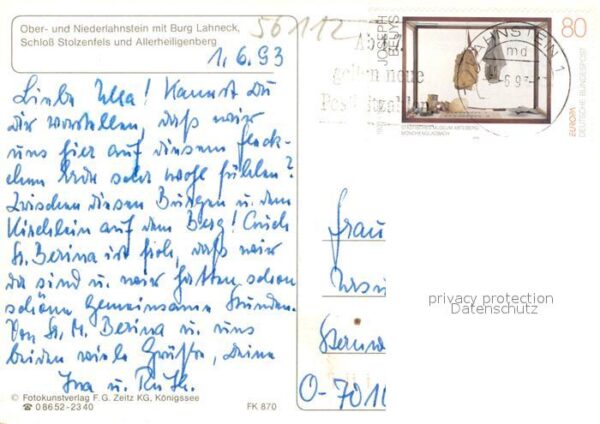 Ober- und Niederlahnstein mit Burg Lahneck,
Schloß Stolzenfels und Allerheiligenberg
56112
1.6.93
Liebe Ulla! Kannst Du
Dir vorstellen, daß wir
uns hier auf diesem Fleck-
chen Erde sehr wohl fühlen?
Zwischen diesen Burgen u. dem
Kirchlein auf dem Berg! Auch
Sr. Berina ist froh, daß wir
da sind u. wir hatten schon
schöne gemeinsame Stunden.
Von Sr. M. Berina u. uns
beiden viele Grüße, Deine
Iva u. Ruth.
© Fotokunstverlag F.G. Zeitz KG, Königssee
☎ 08652-2340
FK 870
JOSEPH BEUYS
80
STÄDTISCHES MUSEUM ABTEIBERG
MÖNCHENGLADBACH
EUROPA
DEUTSCHE BUNDESPOST
Ab
gelten neue
Postleitzahlen
LAHNSTEIN 1
md
Frau
O-701
privacy protection
Datenschutz